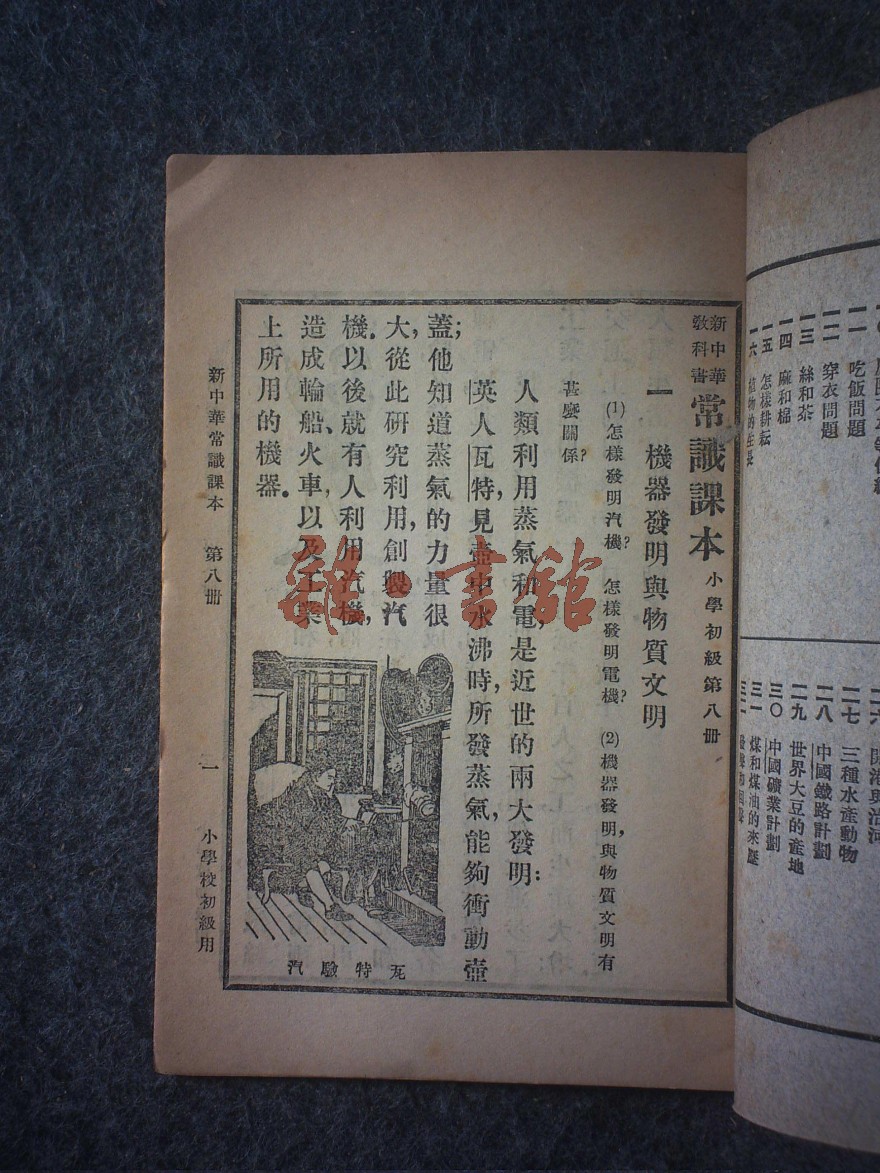 一一
吃飯問題
一二
穿衣問題
一三
絲和茶
一四
麻和棉
一五
怎樣耕耘
一六
植物的生長
二六
開港與治河
二七
三種水產動物
二八
中國鐵路計劃
二九
世界大豆的產地
三〇
中國礦業計劃
三一
煤和煤油的來歷
三二
新中華
教科書
常識課本
小學初級第八册
一 機器發明與物質文明
(1)怎樣發明汽機?怎樣發明電機?(2)機器發明,與物質文明有
甚麼關係?
人類利用蒸氣和電,是近世的兩大發明:
英人瓦特,見壺中水沸時,所發蒸氣,能夠衝動壺
蓋;他知道蒸氣的力量很
大,從此研究利用,創製汽
機。以後就有人利用汽機,
造成輪船、火車,以及工業
上所用的機器。
瓦特驗汽
新中華常識課本 第八册 一 小學校初級用
雜·書館